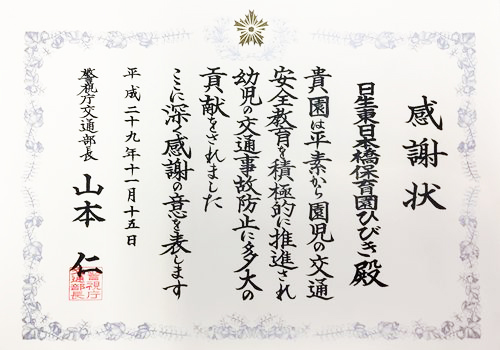 感謝状
日生東日本橋保育園ひびき殿
貴園は平素から園児の交通
安全教育を積極的に推進され
幼児の交通事故防止に多大の
貢献をされました
ここに深く感謝の意を表します
平成二十九年十一月十五日
警視庁交通部長 山本 仁
警視庁
交通部長